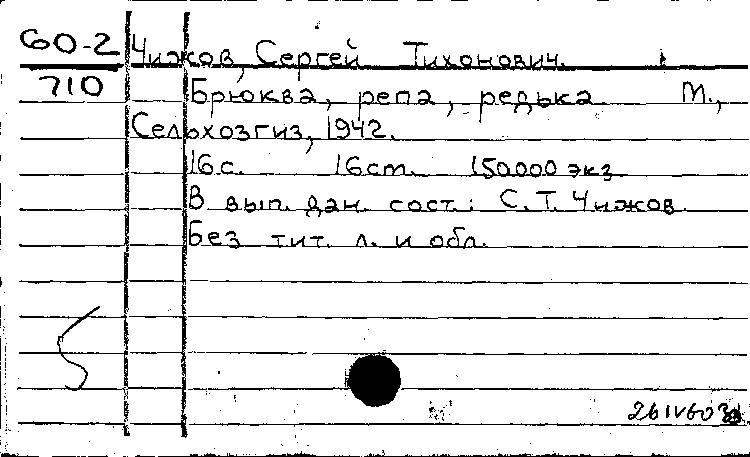 60-2 Чижов, Сергей Тихонович.
710 Брюква, репа, редька М.,
Сельхозгиз, 1942.
16 с. 16 cm. 150.000 экз.
В вып. дан. сост.: С.Т. Чижов
Без тит. л. и обл.
5
26 IV 60